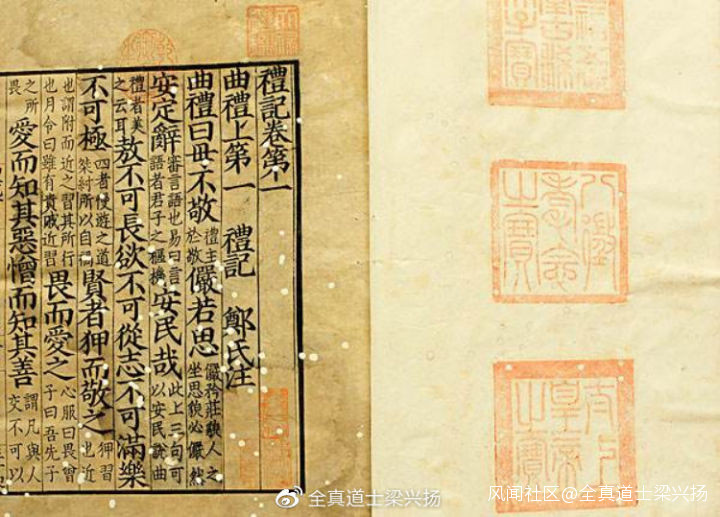 八徵耄念之寶
太上皇帝之寶
禮記卷第一
曲禮上第一 禮記 鄭氏注
曲禮曰毋不敬禮主於敬儼若思儼矜莊貌人之坐思貌必儼然
安定辭審言語也易曰言語者君子之樞機安民哉此上三句可以安民說曲
禮者美之云耳敖不可長欲不可從志不可滿樂
不可極四者慢遊之道桀紂所以自禍賢者狎而敬之狎習也近
也謂附而近之習其所行也月令曰雖有貴戚近習畏而愛之心服曰畏曾子曰吾先子
之所畏愛而知其惡憎而知其善謂凡與人交不可以
全真道士梁兴扬
风闻社区@全真道士梁兴扬